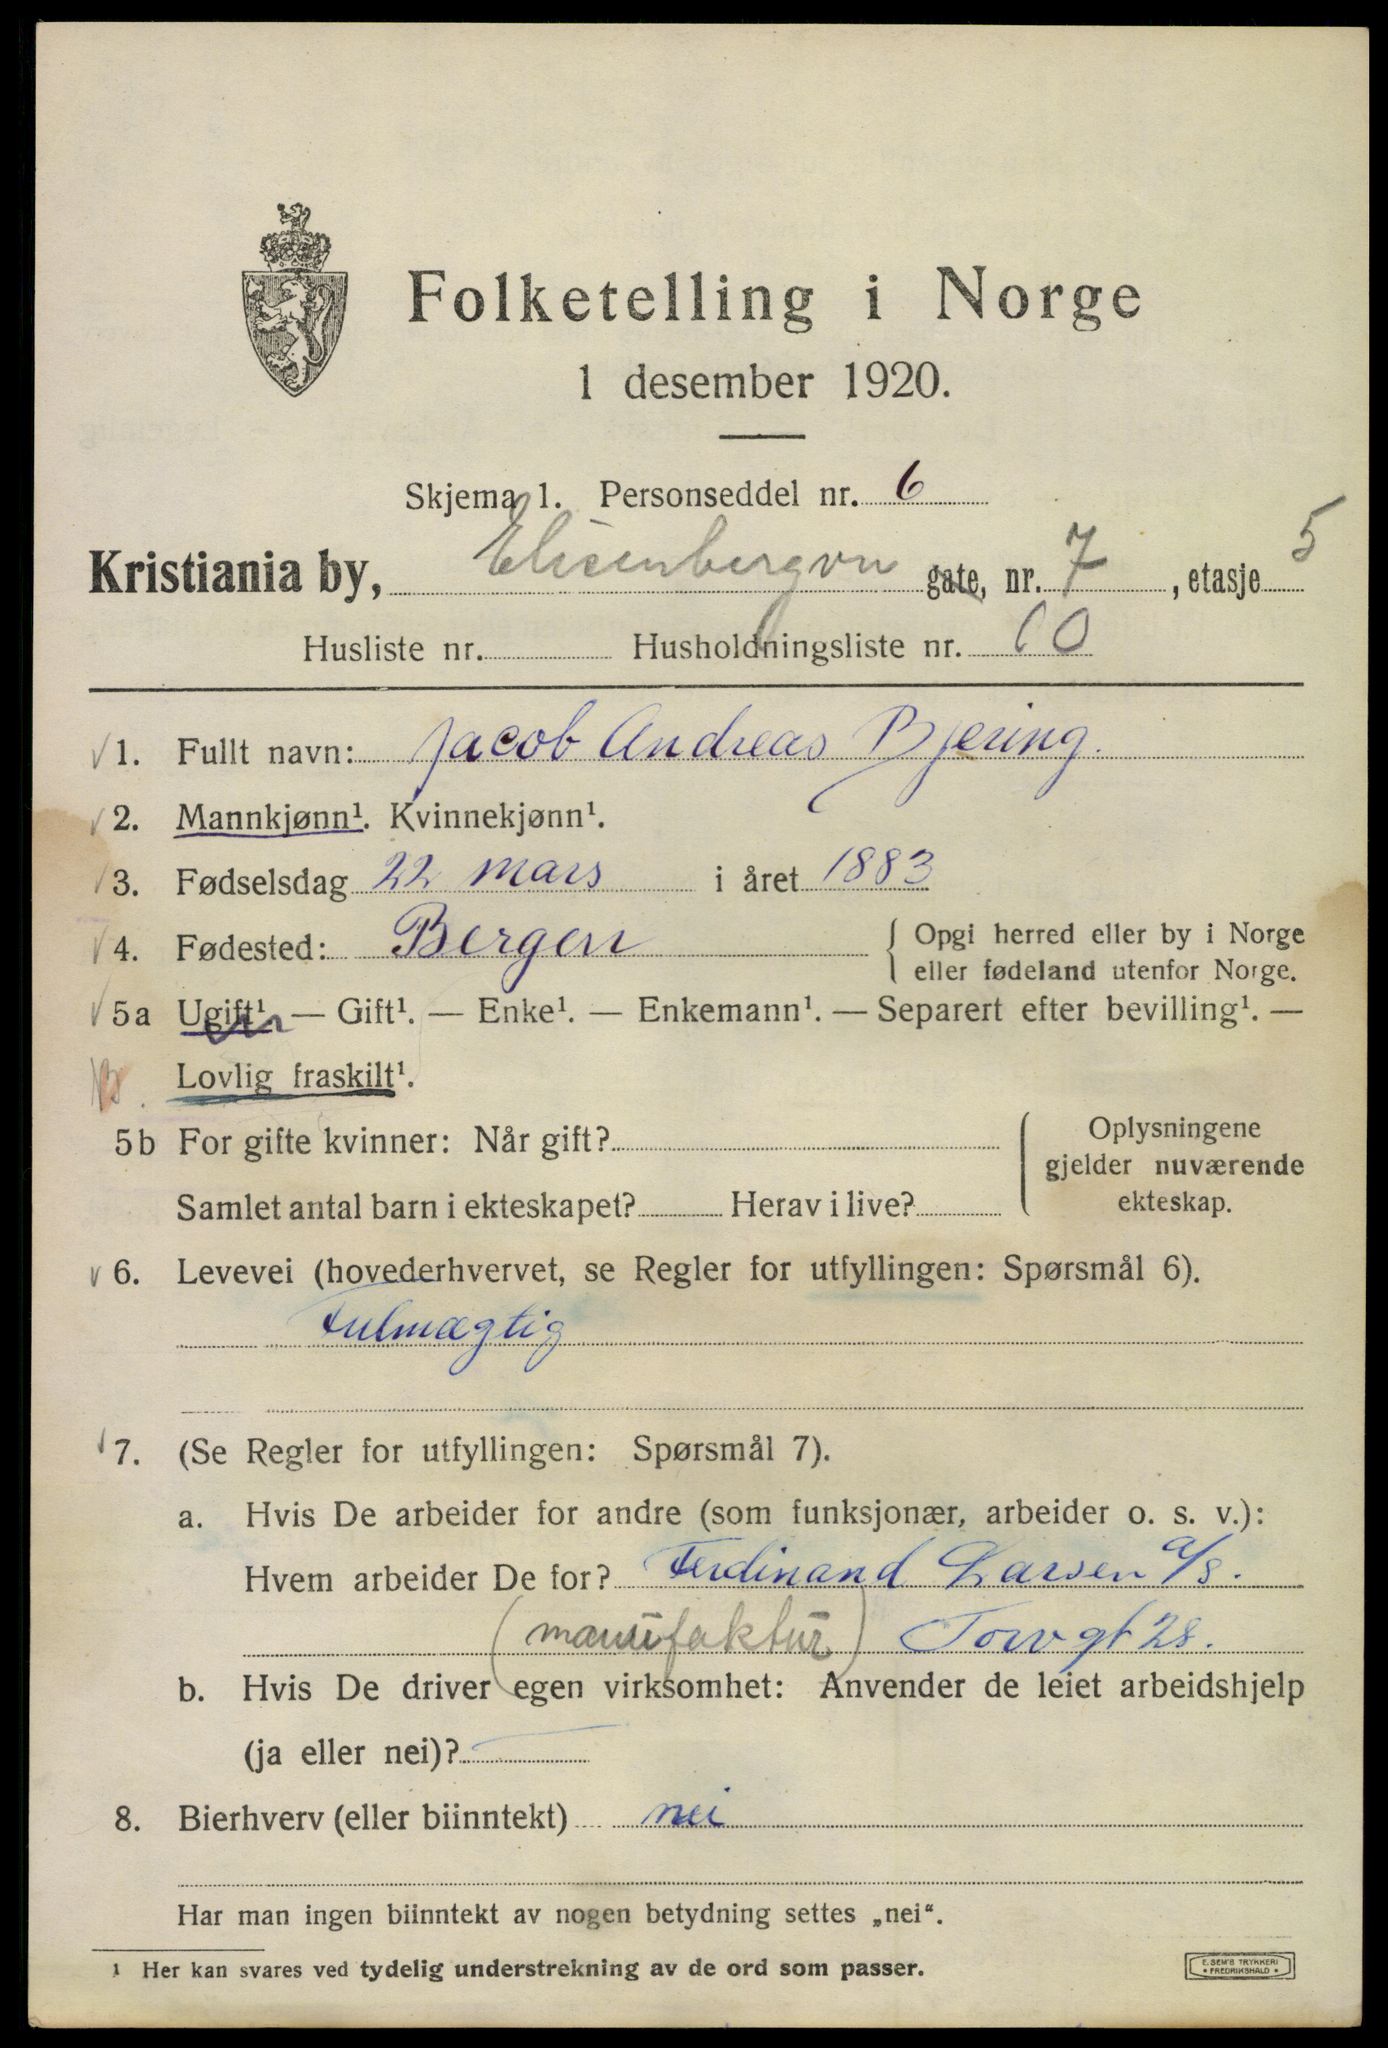 Folketelling i Norge
1 desember 1920.
Skjema 1. Personseddel nr. 6
Kristiania by, Elisenbergvn gate, nr. 7, etasje 5
Husliste nr. Husholdningsliste nr. 10
1. Fullt navn: Jacob Andreas Bjering.
2. Mannkjønn¹. Kvinnekjønn¹.
3. Fødselsdag 22 mars i året 1883
4. Fødested: Bergen { Opgi herred eller by i Norge
eller fødeland utenfor Norge.
5a Ugift¹ — Gift¹. — Enke¹. — Enkemann¹. — Separert efter bevilling¹. —
Lovlig fraskilt¹.
5b For gifte kvinner: Når gift? Oplysningene
gjelder nuværende
Samlet antal barn i ekteskapet? Herav i live? ekteskap.
6. Levevei (hovederhvervet, se Regler for utfyllingen: Spørsmål 6).
Fulmægtig
7. (Se Regler for utfyllingen: Spørsmål 7).
a. Hvis De arbeider for andre (som funksjonær, arbeider o. s. v.):
Hvem arbeider De for? Ferdinand Larsen a/s.
(manufaktur) Torvgt 28.
b. Hvis De driver egen virksomhet: Anvender de leiet arbeidshjelp
(ja eller nei)?
8. Bierhverv (eller biinntekt) nei
Har man ingen biinntekt av nogen betydning settes „nei“.
¹ Her kan svares ved tydelig understrekning av de ord som passer.
E. SEM'S TRYKKERI
• FREDRIKSHALD •